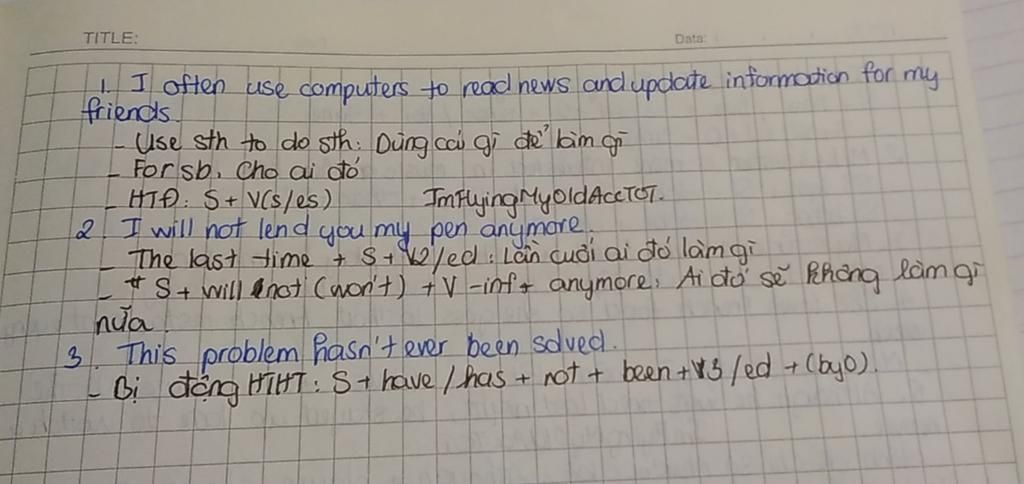 TITLE: Data:
1. I often use computers to read news and update information for my
friends.
- Use sth to do sth: Dùng cái gì để làm gì
- For sb: Cho ai đó
- HTĐ: S + V(s/es) ImFlyingMyOldAccTOT.
2. I will not lend you my pen anymore.
- The last time + S + V2/ed: Lần cuối ai đó làm gì
- * S + will not (won't) + V-inf + anymore: Ai đó sẽ không làm gì
nữa.
3. This problem hasn't ever been solved.
- Bị động HTHT: S + have / has + not + been + V3/ed + (by O).